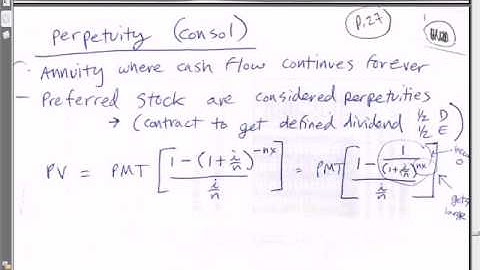 Perpetuity (consol)
P.27
- Annuity where cash flow continues forever
- Preferred Stock are considered perpetuities
→ (contract to get defined dividend ½ D ½ E)
PV = PMT [ (1 - (1 + i/n)^-nx) / (i/n) ] = PMT [ (1 - 1/(1 + i/n)^nx) / (i/n) ]
0
gets large